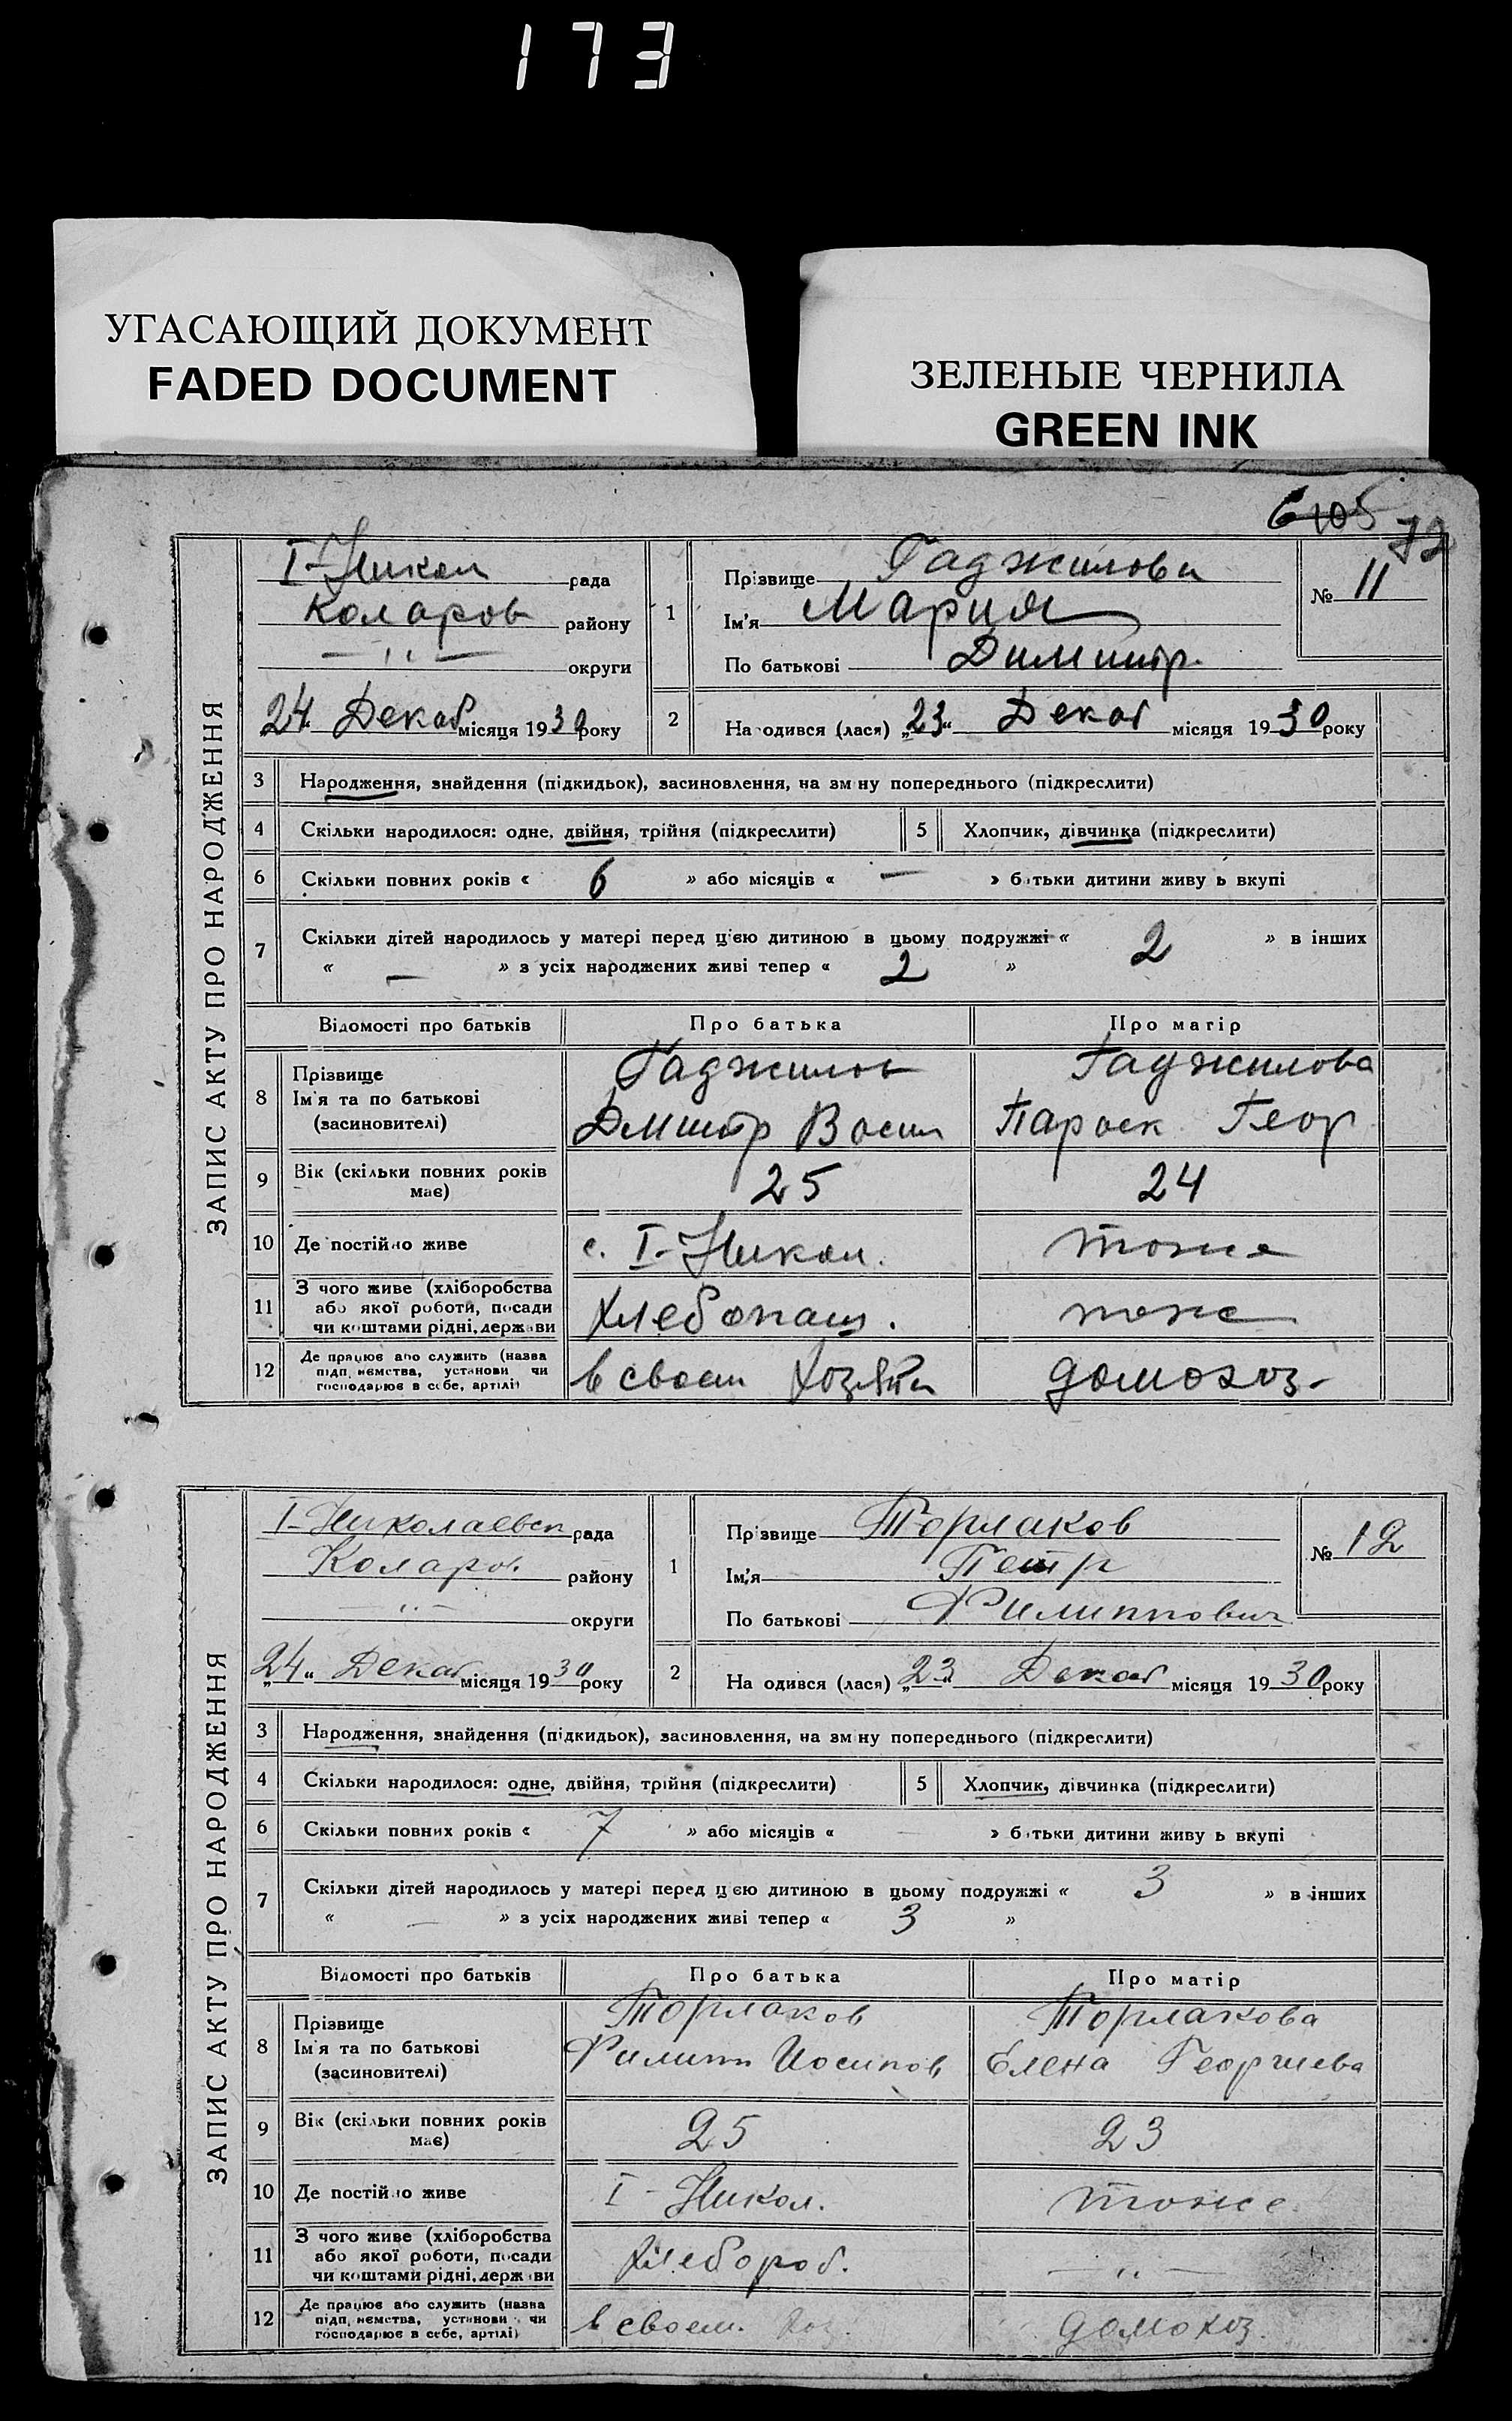 173
УГАСАЮЩИЙ ДОКУМЕНТ
FADED DOCUMENT
ЗЕЛЕНЫЕ ЧЕРНИЛА
GREEN INK
6 105 72
ЗАПИС АКТУ ПРО НАРОДЖЕННЯ
I-Никол рада
Коларов району
— " — округи
24 Декаб місяця 1930 року
1 Прізвище Гаджилови
Ім'я Мария
По батькові Димитр.
№ 11
2 Народився (лася) „23“ Декаб місяця 1930 року
3 Народження, знайдення (підкидьок), засиновлення, на зміну попереднього (підкреслити)
4 Скільки народилося: одне, двійня, трійня (підкреслити) 5 Хлопчик, дівчинка (підкреслити)
6 Скільки повних років « 6 » або місяців « — » батьки дитини живуть вкупі
7 Скільки дітей народилось у матері перед цією дитиною в цьому подружжі « 2 » в інших
« — » з усіх народжених живі тепер « 2 »
Відомості про батьків Про батька Про матір
8 Прізвище Ім'я та по батькові (засиновителі)
Гаджилов Гаджилова
Дмитр Васил Параск Геор
9 Вік (скільки повних років має) 25 24
10 Де постійно живе с. I-Никол. тоже
11 З чого живе (хліборобства або якої роботи, посади чи коштами рідні, держави Хлебопаш. тоже
12 Де працює або служить (назва підприємства, установи чи господарює в себе, артілі) в своем хозяйи домохоз.
ЗАПИС АКТУ ПРО НАРОДЖЕННЯ
I-Николаевск рада
Коларов. району
— " — округи
„24“ Декаб місяця 1930 року
1 Прізвище Торлаков
Ім'я Петр
По батькові Филиппович
№ 12
2 Народився (лася) „23“ Декаб місяця 1930 року
3 Народження, знайдення (підкидьок), засиновлення, на зміну попереднього (підкреслити)
4 Скільки народилося: одне, двійня, трійня (підкреслити) 5 Хлопчик, дівчинка (підкреслити)
6 Скільки повних років « 7 » або місяців « » батьки дитини живуть вкупі
7 Скільки дітей народилось у матері перед цією дитиною в цьому подружжі « 3 » в інших
« — » з усіх народжених живі тепер « 3 »
Відомості про батьків Про батька Про матір
8 Прізвище Ім'я та по батькові (засиновителі)
Торлаков Торлакова
Филипп Иосипов Елена Георгиева
9 Вік (скільки повних років має) 25 23
10 Де постійно живе I-Никол. тоже
11 З чого живе (хліборобства або якої роботи, посади чи коштами рідні, держави Хлебороб. — " —
12 Де працює або служить (назва підприємства, установи чи господарює в себе, артілі) в своем. хоз. домохоз.